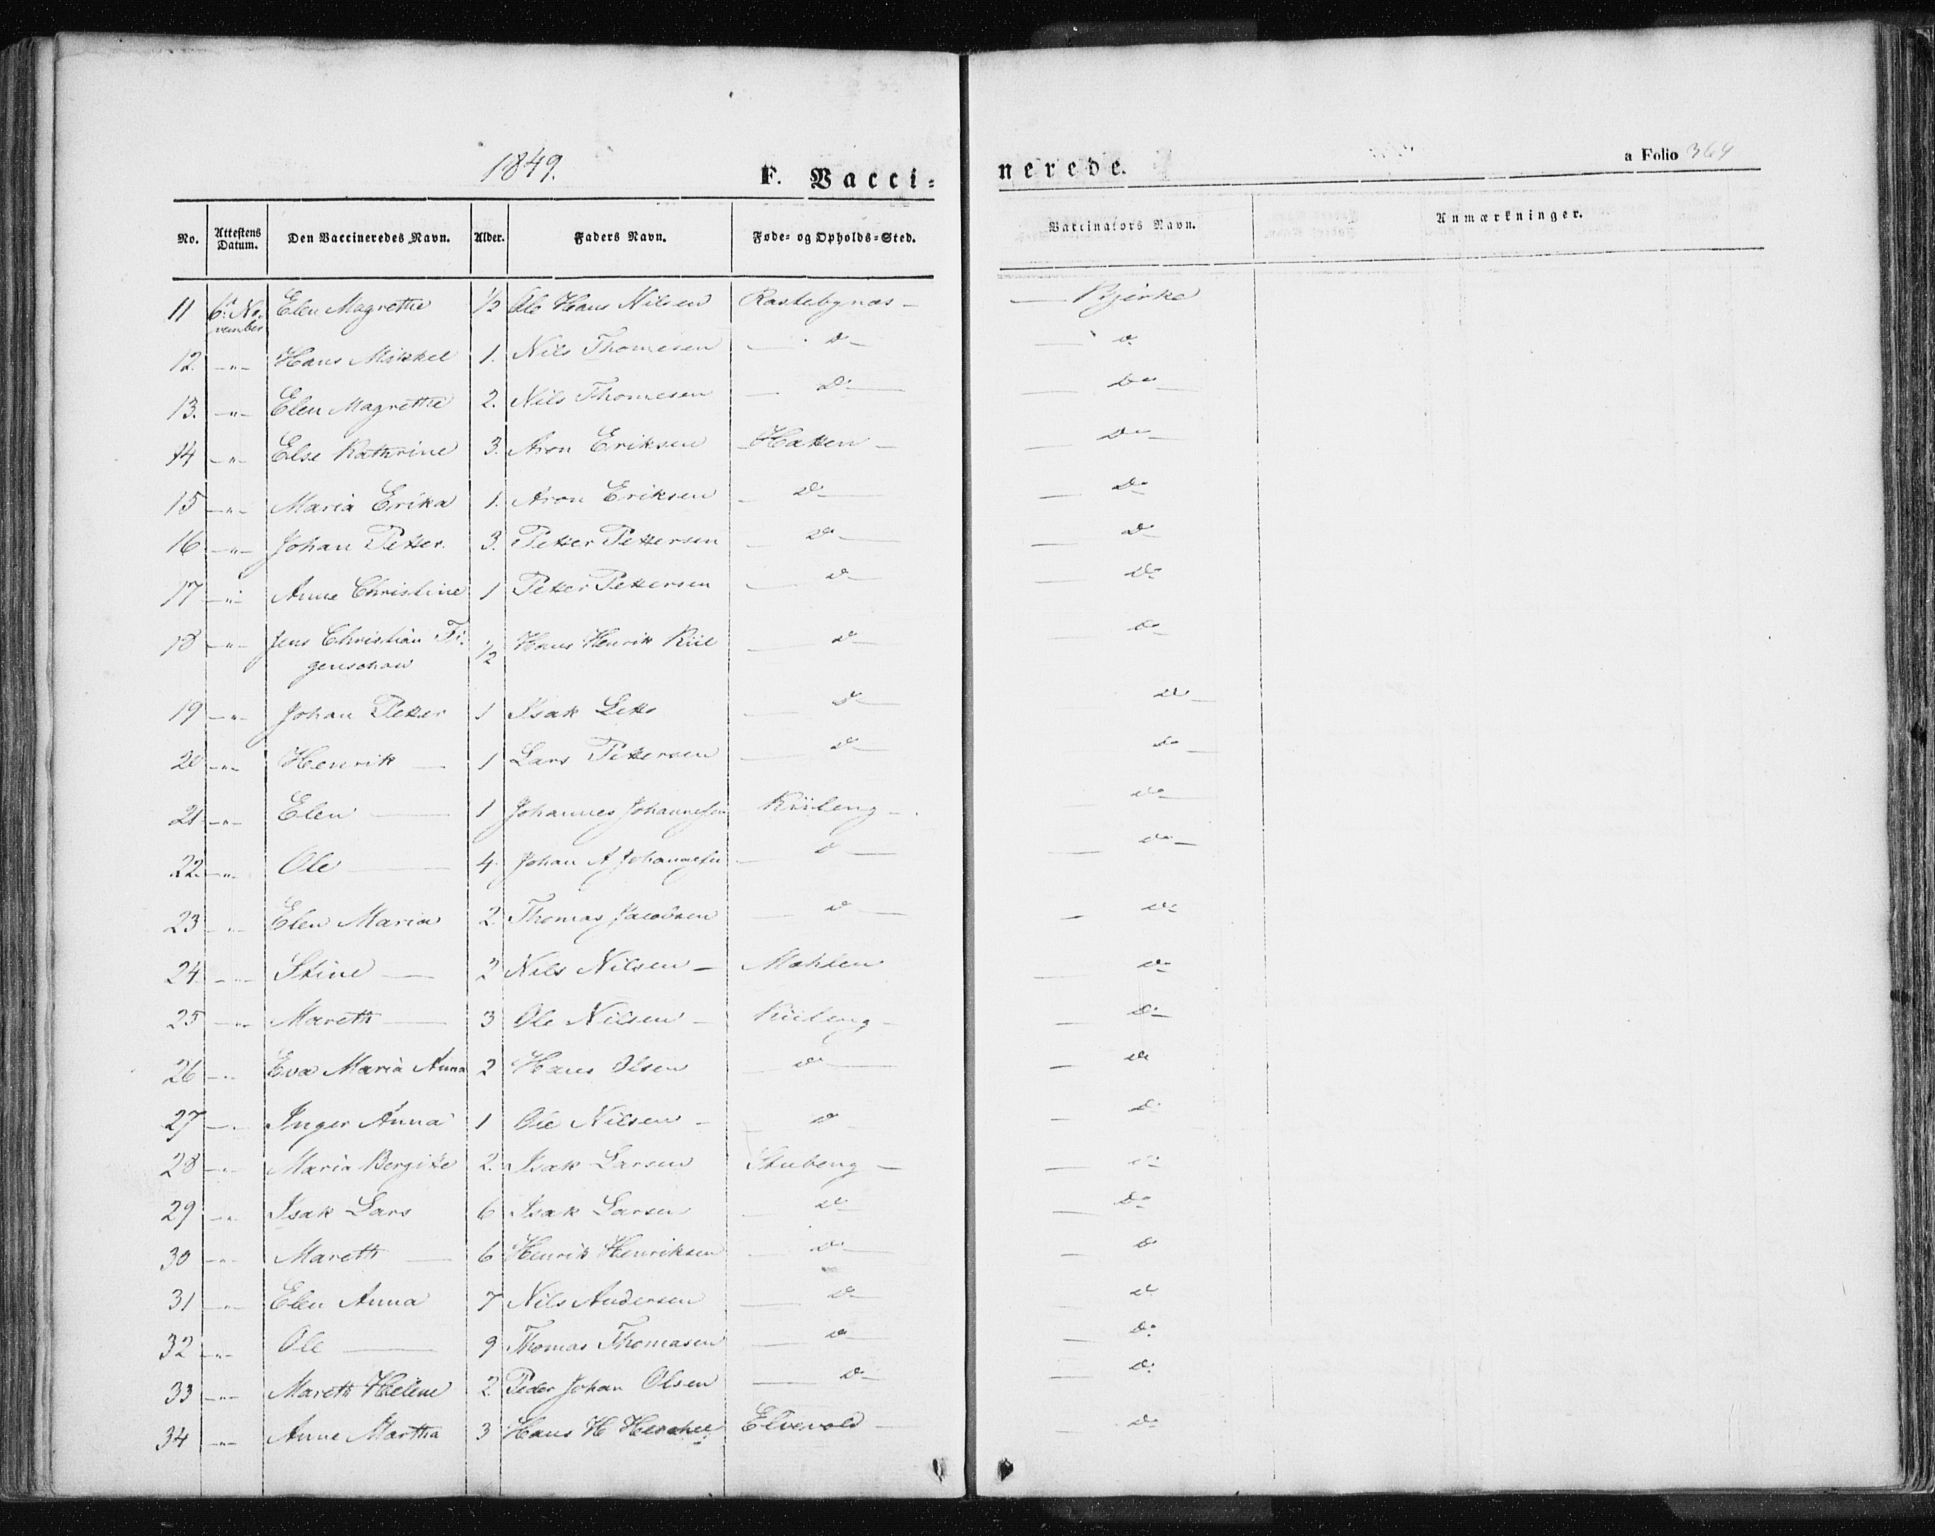 1849.
F. Vacci-
nerede.
a Folio 364
No.
Attestens Datum.
Den Vaccineredes Navn.
Alder.
Faders Navn.
Føde- og Opholds-Sted.
Vaccinators Navn.
Anmærkninger.
11 6te No- Elen Magrethe 1/2 Ole Hans Nilsen Rastebynæs — — Bjerke
vember
12. —"— Hans Mikkel 1. Nils Thomesen — do — — do
13. —"— Elen Magrethe 2. Nils Thomesen — do — — do —
14 —"— Else Kathrine 3. Aron Eriksen Hatten — — do —
15 —"— Maria Erika 1. Aron Eriksen — do — — do
16 —"— Johan Petter. 3. Petter Pettersen — do — — do
17 —"— Anne Christine 1 Petter Pettersen — do — — do
18 —"— Jens Christian Fi- 1/2 Hans Henrik Kiil — do — — do
genschau
19 —"— Johan Petter 1 Isak — do — do —
20 —"— Henrik — 1 Lars Pettersen — do — do —
21 —"— Elen — 1 Johannes Johannesen Kiileng — — do —
22 —"— Ole — 4 Johan A Johannesen — do — — do —
23 —"— Elen Maria 2. Thomas Jacobsen — do — — do
24 —"— Stine — 2 Nils Nilsen — — do
25 —"— Mareth — 3 Ole Nilsen — Kiileng — — do
26 —"— Eva Maria Anna 2 Hans Olsen — do — — do
27 —"— Inger Anna 1 Ole Nilsen — — do — — do
28 —"— Maria Bergitte 2. Isak Larsen Stubeng — — do
29 —"— Isak Lars 6 Isak Larsen — do — do
30 —"— Mareth — 6 Henrik Henriksen — do — — do
31 —"— Elen Anna 7 Nils Andersen — do — — do
32 —"— Ole — 9 Thomas Thomasen — do — — do
33 —"— Mareth Helene 2 Peder Johan Olsen — do — — do
34 —"— Anne Martha 3 Hans H Elvevold — — do